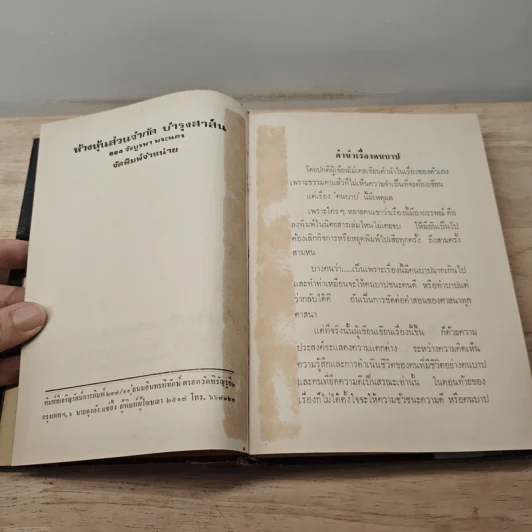 ห้างหุ้นส่วนจำกัด บำรุงสาส์น
๑๑๑ วังบูรพา พระนคร
จัดพิมพ์จำหน่าย
กรุงเทพฯ, นายดุงเล้ง แซ่อึ้ง ผู้พิมพ์ผู้โฆษณา ๒๕๑๙ โทร.
คำนำเรื่องคนบาป
โดยปกติผู้เขียนไม่เคยเขียนคำนำในเรื่องของตัวเอง
เพราะธรรมดาแล้วก็ไม่เห็นความจำเป็นที่จะต้องเขียน
แต่เรื่อง 'คนบาป' นี้มีเหตุผล
เพราะใคร ๆ หลายคนเขาว่าเรื่องนี้มีอาถรรพณ์ คือ
ลงพิมพ์ในนิตยสารเล่มไหนไม่เคยจบ ให้มีอันเป็นไป
ต้องเลิกกิจการหรือหยุดพิมพ์ไปเสียทุกครั้ง ถึงสามครั้ง
สามหน
บางคนว่า.....เป็นเพราะเรื่องนี้มีคนบาปมากเกินไป
และทำท่าเหมือนจะให้คนบาปชนะคนดี หรือทำบาปแต่
ว่ากลับได้ดี อันเป็นการขัดต่อคำสอนของศาสนาทุก
ศาสนา
แต่ที่จริงนั้นผู้เขียนเขียนเรื่องนี้ขึ้น ก็ด้วยความ
ประสงค์จะแสดงความแตกต่าง ระหว่างความคิดเห็น
ความรู้สึกและการดำเนินชีวิตของคนที่มีชีวิตอย่างคนบาป
และคนที่ยึดความดีเป็นสรณะเท่านั้น ในตอนท้ายของ
เรื่องก็ไม่ได้ตั้งใจจะให้ความชั่วชนะความดี หรือคนบาป